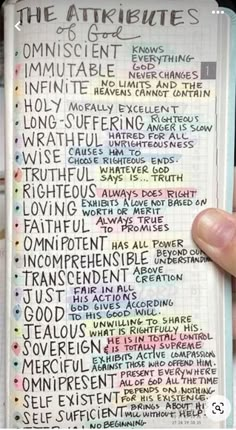 THE ATTRIBUTES
of God
OMNISCIENT KNOWS EVERYTHING
IMMUTABLE GOD NEVER CHANGES
INFINITE NO LIMITS AND THE HEAVENS CANNOT CONTAIN
HOLY MORALLY EXCELLENT
LONG-SUFFERING RIGHTEOUS ANGER IS SLOW
WRATHFUL HATRED FOR ALL UNRIGHTEOUSNESS
WISE CAUSES HIM TO CHOOSE RIGHTEOUS ENDS.
TRUTHFUL WHATEVER GOD SAYS IS... TRUTH
RIGHTEOUS ALWAYS DOES RIGHT
LOVING EXHIBITS A LOVE NOT BASED ON WORTH OR MERIT
FAITHFUL ALWAYS TRUE TO PROMISES
OMNIPOTENT HAS ALL POWER
INCOMPREHENSIBLE BEYOND OUR UNDERSTANDIN
TRANSCENDENT ABOVE CREATION
JUST FAIR IN ALL HIS ACTIONS
GOOD GOD GIVES ACCORDING TO HIS GOOD WILL.
JEALOUS UNWILLING TO SHARE WHAT IS RIGHTFULLY HIS.
SOVEREIGN HE IS IN TOTAL CONTROL & IS TOTALLY SUPREME
MERCIFUL EXHIBITS ACTIVE COMPASSION AGAINST THOSE WHO OFFEND HIM.
OMNIPRESENT PRESENT EVERYWHERE ALL OF GOD ALL THE TIME
SELF EXISTENT DEPENDS ON NOTHING FOR HIS EXISTENCE.
SELF SUFFICIENT BRINGS ABOUT HI WILL WITHOUT HELP.
NO BEGINNING